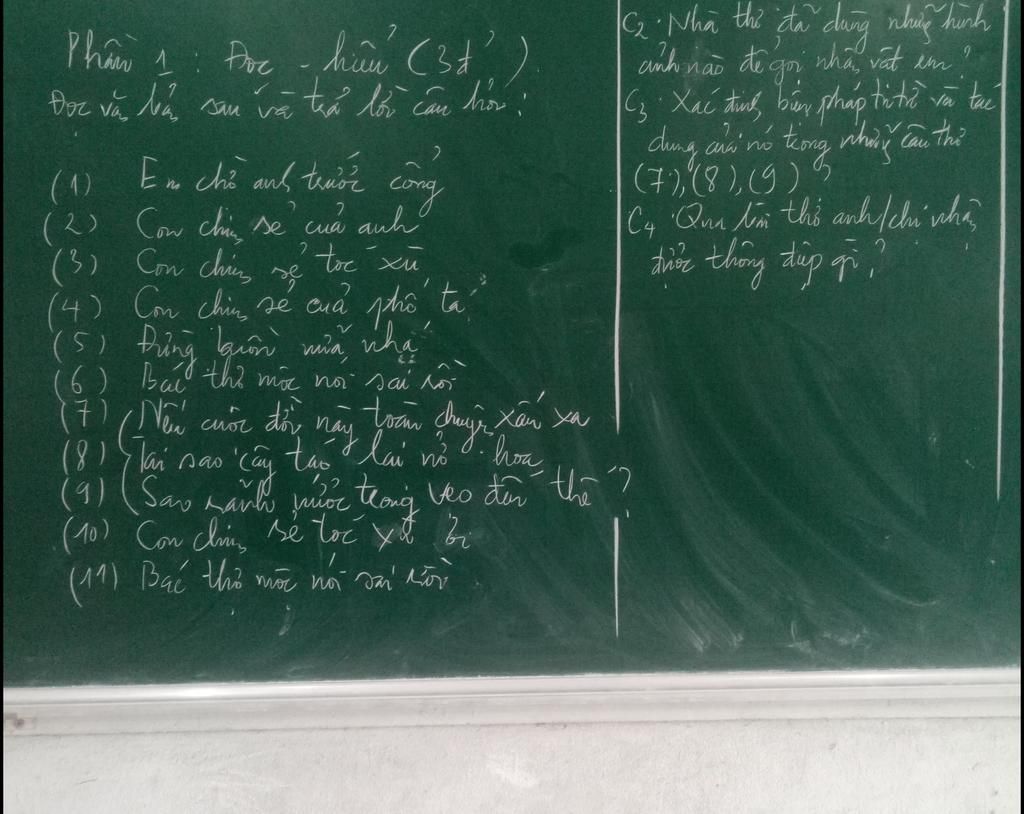 Phần 1 : Đọc - hiểu (3đ)
Đọc văn bản sau và trả lời câu hỏi :
(1) Em chờ anh trước cổng
(2) Con chim sẻ của anh
(3) Con chim sẻ tóc xù
(4) Con chim sẻ của phố ta
(5) Đừng buồn nữa nhá
(6) Bác thợ mộc nói sai rồi
(7) Nếu cuộc đời này toàn chuyện xấu xa
(8) Tại sao cây táo lại nở hoa
(9) Sao rãnh nước trong veo đến thế ?
(10) Con chim sẻ tóc xù ơi
(11) Bác thợ mộc nói sai rồi
C2. Nhà thơ đã dùng những hình
ảnh nào để gọi nhân vật em ?
C3 Xác định biện pháp tu từ và tác
dụng của nó trong những câu thơ
(7), (8), (9) ?
C4 Qua bài thơ anh/chị nhận
được thông điệp gì ?